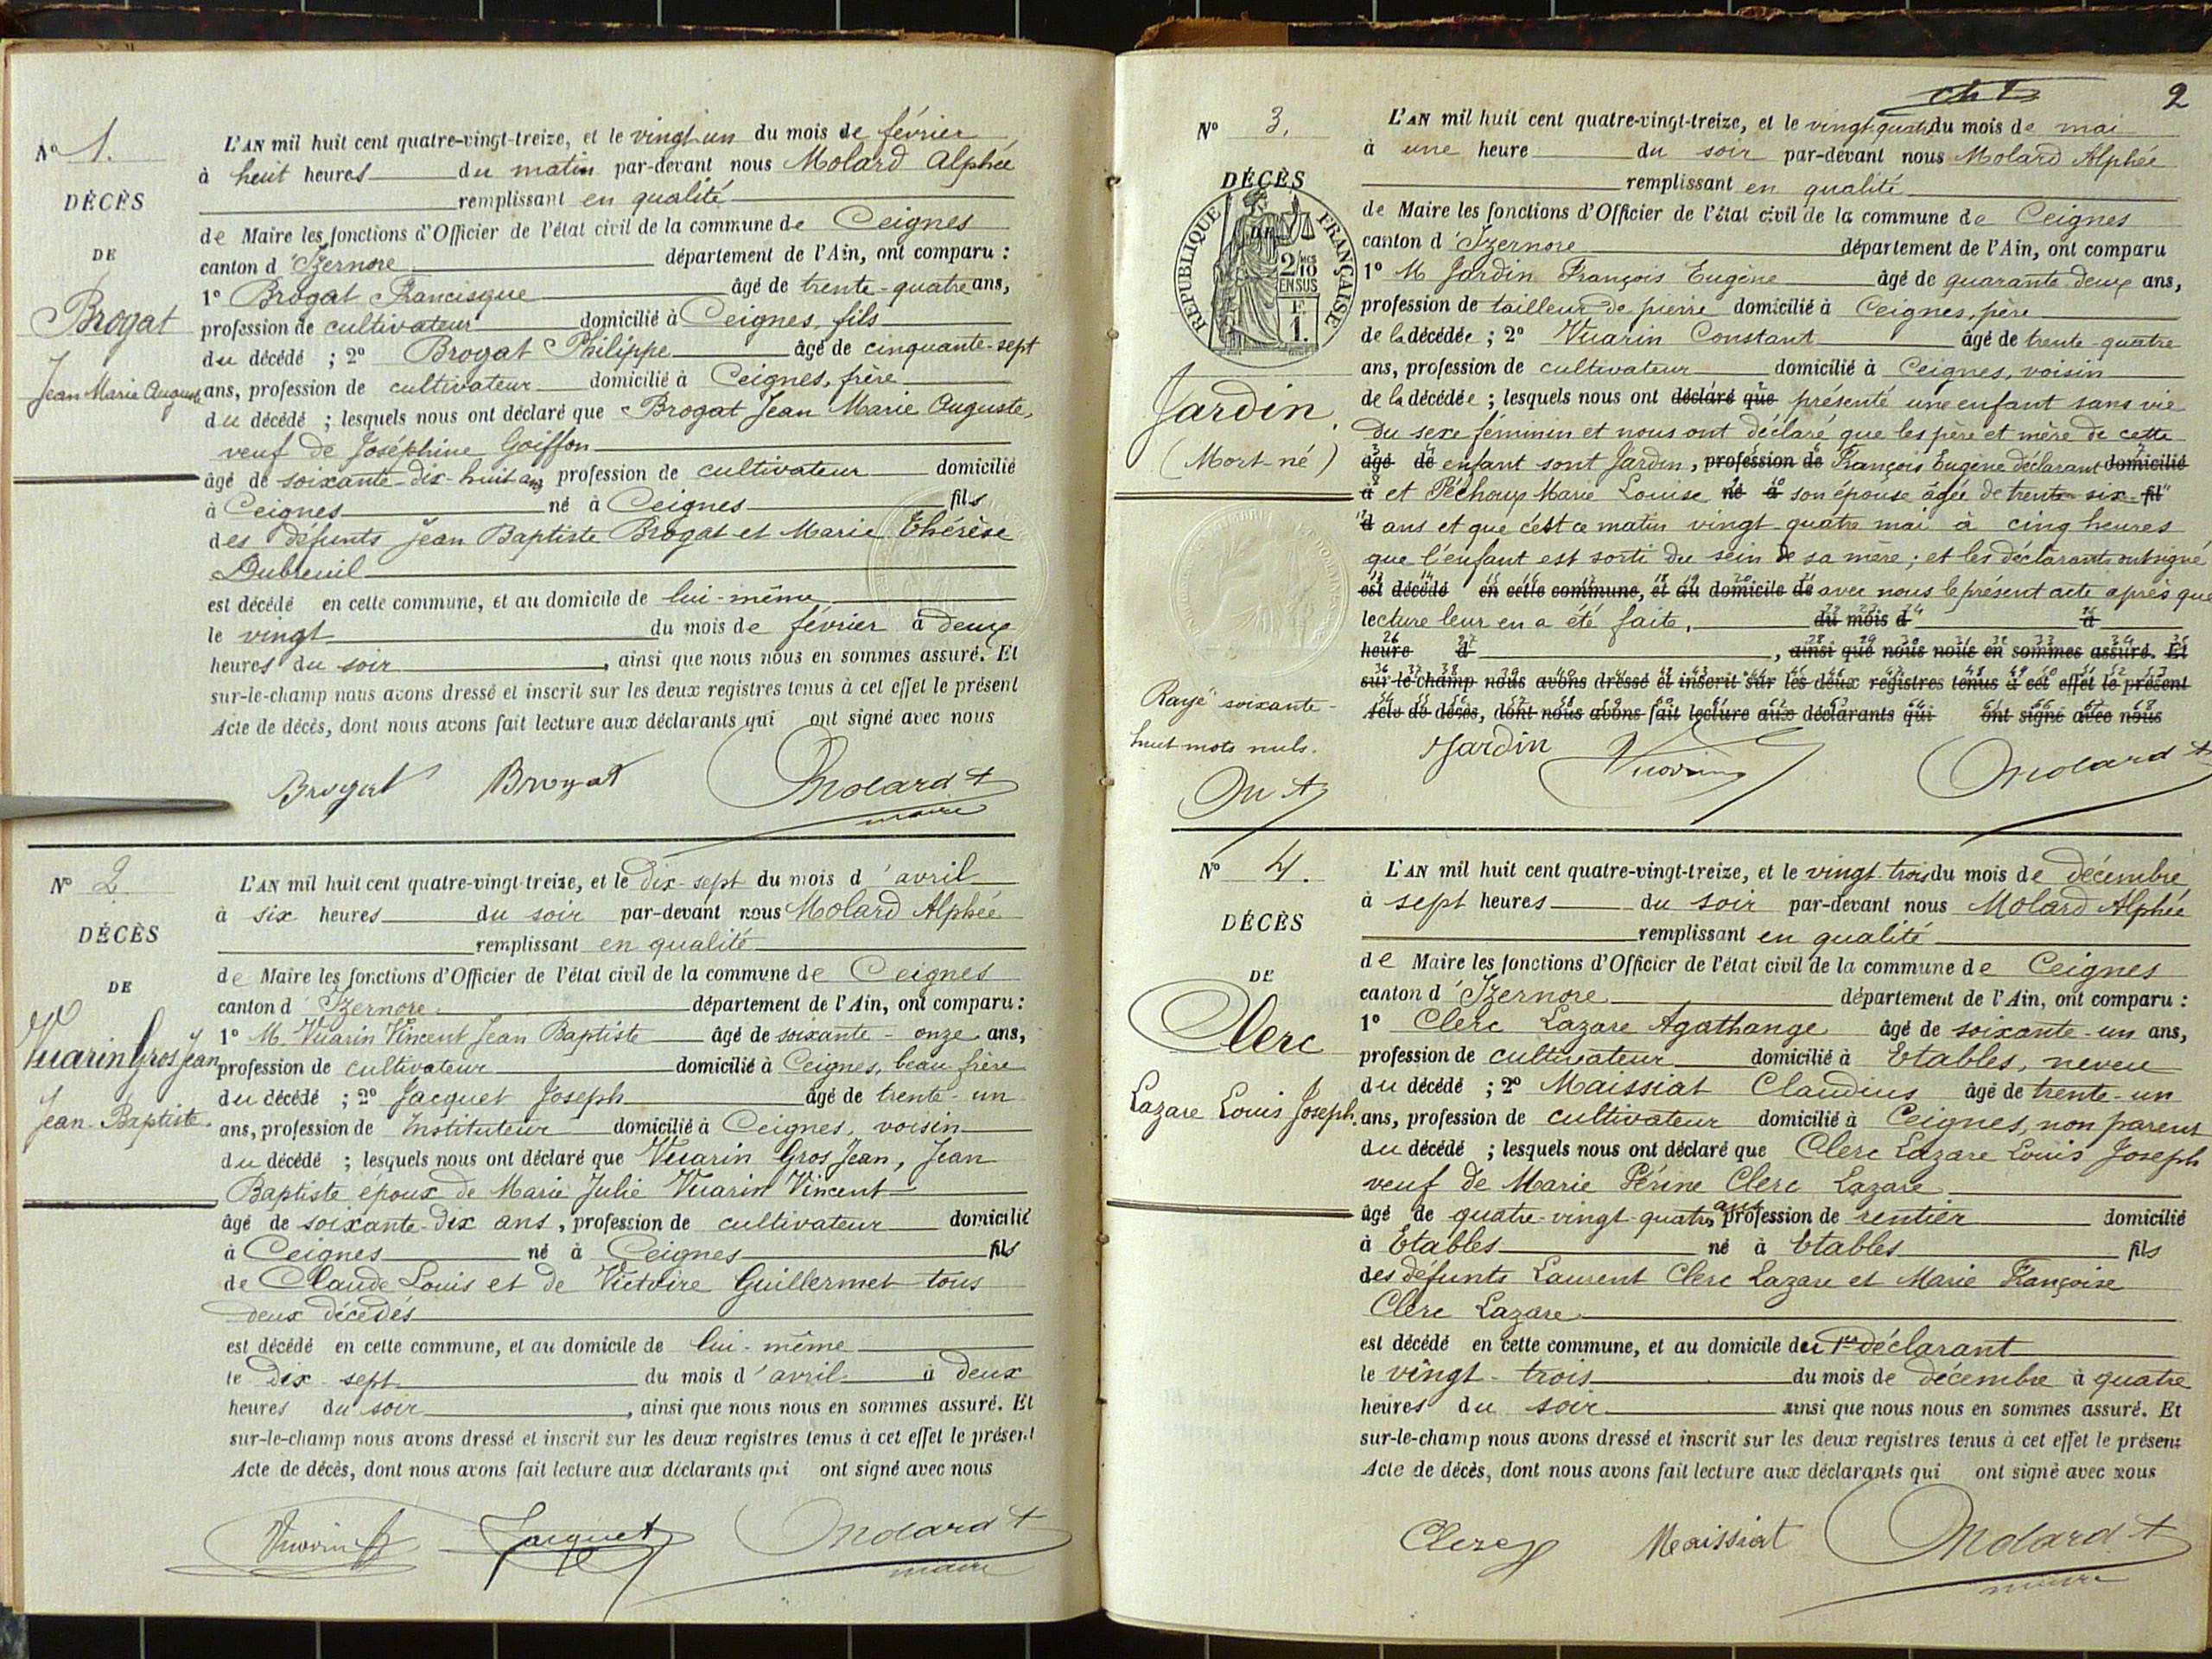 N° 1.
DÉCÈS
DE
Brogat
Jean Marie Auguste
L'AN mil huit cent quatre-vingt-treize, et le vingt un du mois de février
à huit heures du matin par-devant nous Molard Alphée
remplissant en qualité
de Maire les fonctions d'Officier de l'état civil de la commune de Ceignes
canton d'Izernore département de l'Ain, ont comparu :
1° Brogat Francisque âgé de trente-quatre ans,
profession de cultivateur domicilié à Ceignes, fils
du décédé ; 2° Brogat Philippe âgé de cinquante-sept
ans, profession de cultivateur domicilié à Ceignes, frère
du décédé ; lesquels nous ont déclaré que Brogat Jean Marie Auguste,
veuf de Joséphine Goiffon
âgé de soixante-dix-huit ans profession de cultivateur domicilié
à Ceignes né à Ceignes fils
des défunts Jean Baptiste Brogat et Marie Thérèse
Dubreuil
est décédé en cette commune, et au domicile de lui-même
le vingt du mois de février à deux
heures du soir, ainsi que nous nous en sommes assuré. Et
sur-le-champ nous avons dressé et inscrit sur les deux registres tenus à cet effet le présent
Acte de décès, dont nous avons fait lecture aux déclarants qui ont signé avec nous
Brogat Brogat Molard A
maire
N° 2.
DÉCÈS
DE
Vuarin Gros Jean
Jean-Baptiste.
L'AN mil huit cent quatre-vingt-treize, et le dix-sept du mois d'avril
à six heures du soir par-devant nous Molard Alphée
remplissant en qualité
de Maire les fonctions d'Officier de l'état civil de la commune de Ceignes
canton d'Izernore département de l'Ain, ont comparu :
1° M. Vuarin Vincent Jean Baptiste âgé de soixante-onze ans,
profession de cultivateur domicilié à Ceignes, beau frère
du décédé ; 2° Jacquet Joseph âgé de trente-un
ans, profession de Instituteur domicilié à Ceignes, voisin
du décédé ; lesquels nous ont déclaré que Vuarin Gros Jean, Jean
Baptiste époux de Marie Julie Vuarin Vincent
âgé de soixante-dix ans, profession de cultivateur domicilié
à Ceignes né à Ceignes fils
de Claude Louis et de Victoire Guillermet tous
deux décédés
est décédé en cette commune, et au domicile de lui-même
le dix-sept du mois d'avril à deux
heures du soir, ainsi que nous nous en sommes assuré. Et
sur-le-champ nous avons dressé et inscrit sur les deux registres tenus à cet effet le présent
Acte de décès, dont nous avons fait lecture aux déclarants qui ont signé avec nous
Vuarin Jacquet Molard A
maire
2
N° 3.
DÉCÈS
DE
RÉPUBLIQUE FRANÇAISE
2/10
EN SUS
F.
1.
Jardin.
(Mort-né)
L'AN mil huit cent quatre-vingt-treize, et le vingt-quatre du mois de mai
à une heure du soir par-devant nous Molard Alphée
remplissant en qualité
de Maire les fonctions d'Officier de l'état civil de la commune de Ceignes
canton d'Izernore département de l'Ain, ont comparu
1° M Jardin François Eugène âgé de quarante-deux ans,
profession de tailleur de pierre domicilié à Ceignes, père
de la décédée ; 2° Vuarin Constant âgé de trente-quatre
ans, profession de cultivateur domicilié à Ceignes, voisin
de la décédée ; lesquels nous ont déclaré que présenté une enfant sans vie
du sexe féminin et nous ont déclaré que les père et mère de cette
âgé de enfant sont Jardin, profession de François Eugène déclarant domicilié
à et Péchoux Marie Louise né à son épouse âgée de trente-six fil
d ans et que c'est ce matin vingt-quatre mai à cinq heures
que l'enfant est sorti du sein de sa mère ; et les déclarants ont signé
est décédé en cette commune, et au domicile de avec nous le présent acte après que
lecture leur en a été faite. du mois d à
heure d, ainsi que nous nous en sommes assuré. Et
sur-le-champ nous avons dressé et inscrit sur les deux registres tenus à cet effet le présent
Acte de décès, dont nous avons fait lecture aux déclarants qui ont signé avec nous
Rayé soixante-
huit mots nuls.
M A
Jardin Vuarin Molard A
N° 4.
DÉCÈS
DE
Clerc
Lazare Louis Joseph.
L'AN mil huit cent quatre-vingt-treize, et le vingt-trois du mois de décembre
à sept heures du soir par-devant nous Molard Alphée
remplissant en qualité
de Maire les fonctions d'Officier de l'état civil de la commune de Ceignes
canton d'Izernore département de l'Ain, ont comparu :
1° Clerc Lazare Agathange âgé de soixante-un ans,
profession de cultivateur domicilié à Etables, neveu
du décédé ; 2° Maissiat Claudius âgé de trente-un
ans, profession de cultivateur domicilié à Ceignes, non parent
du décédé ; lesquels nous ont déclaré que Clerc Lazare Louis Joseph
veuf de Marie Périne Clerc Lazare
âgé de quatre-vingt-quatre ans profession de rentier domicilié
à Etables né à Etables fils
des défunts Laurent Clerc Lazare et Marie Françoise
Clerc Lazare
est décédé en cette commune, et au domicile du 1er déclarant
le vingt-trois du mois de décembre à quatre
heures du soir ainsi que nous nous en sommes assuré. Et
sur-le-champ nous avons dressé et inscrit sur les deux registres tenus à cet effet le présent
Acte de décès, dont nous avons fait lecture aux déclarants qui ont signé avec nous
Clerc Maissiat Molard A
maire